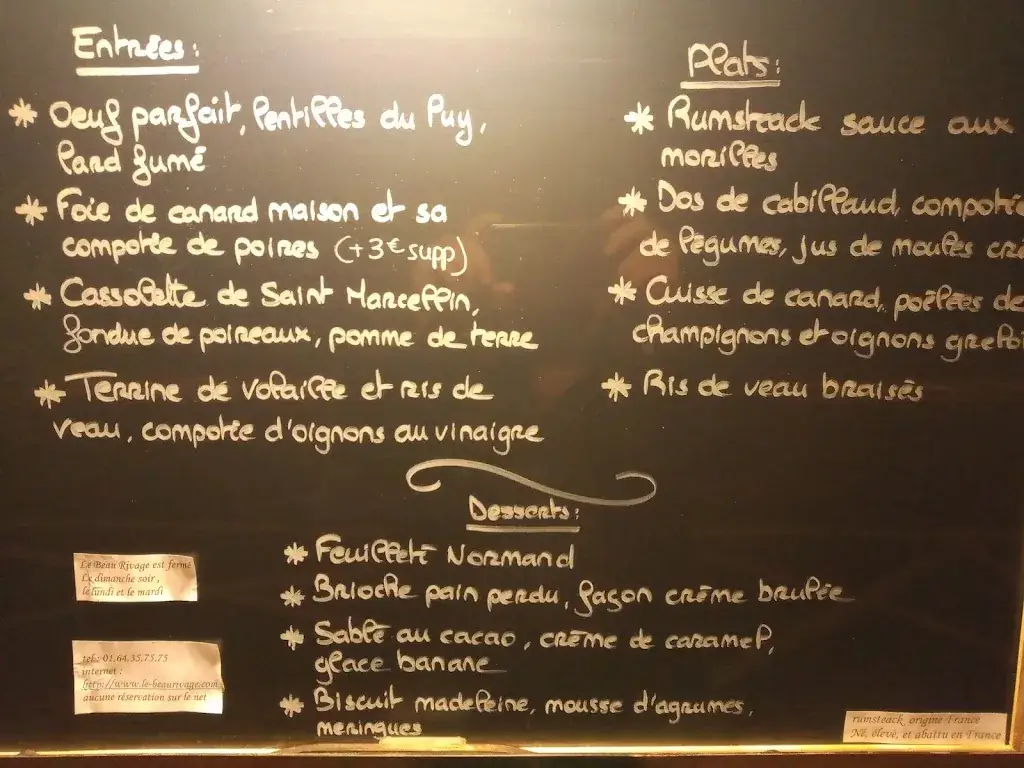 Entrées :
* Oeuf parfait, lentilles du Puy,
lard fumé
* Foie de canard maison et sa
compotée de poires (+3€ supp)
* Cassolette de Saint Marcellin,
fondue de poireaux, pomme de terre
* Terrine de volaille et ris de
veau, compotée d'oignons au vinaigre
Plats :
* Rumsteack sauce aux
morilles
* Dos de cabillaud, compotée
de légumes, jus de moules
* Cuisse de canard, poêlées de
champignons et oignons
* Ris de veau braisés
Desserts :
* Feuilleté Normand
* Brioche pain perdu, façon crème brulée
* Sablé au cacao, crème de caramel,
glace banane
* Biscuit madeleine, mousse d'agrumes,
meringues
Le Beau Rivage est fermé
Le dimanche soir,
le lundi et le mardi
tel : 01.64.35.75.75
internet :
http://www.le-beaurivage.com
aucune réservation sur le net
rumsteack, origine France
Né, élevé, et abattu en France